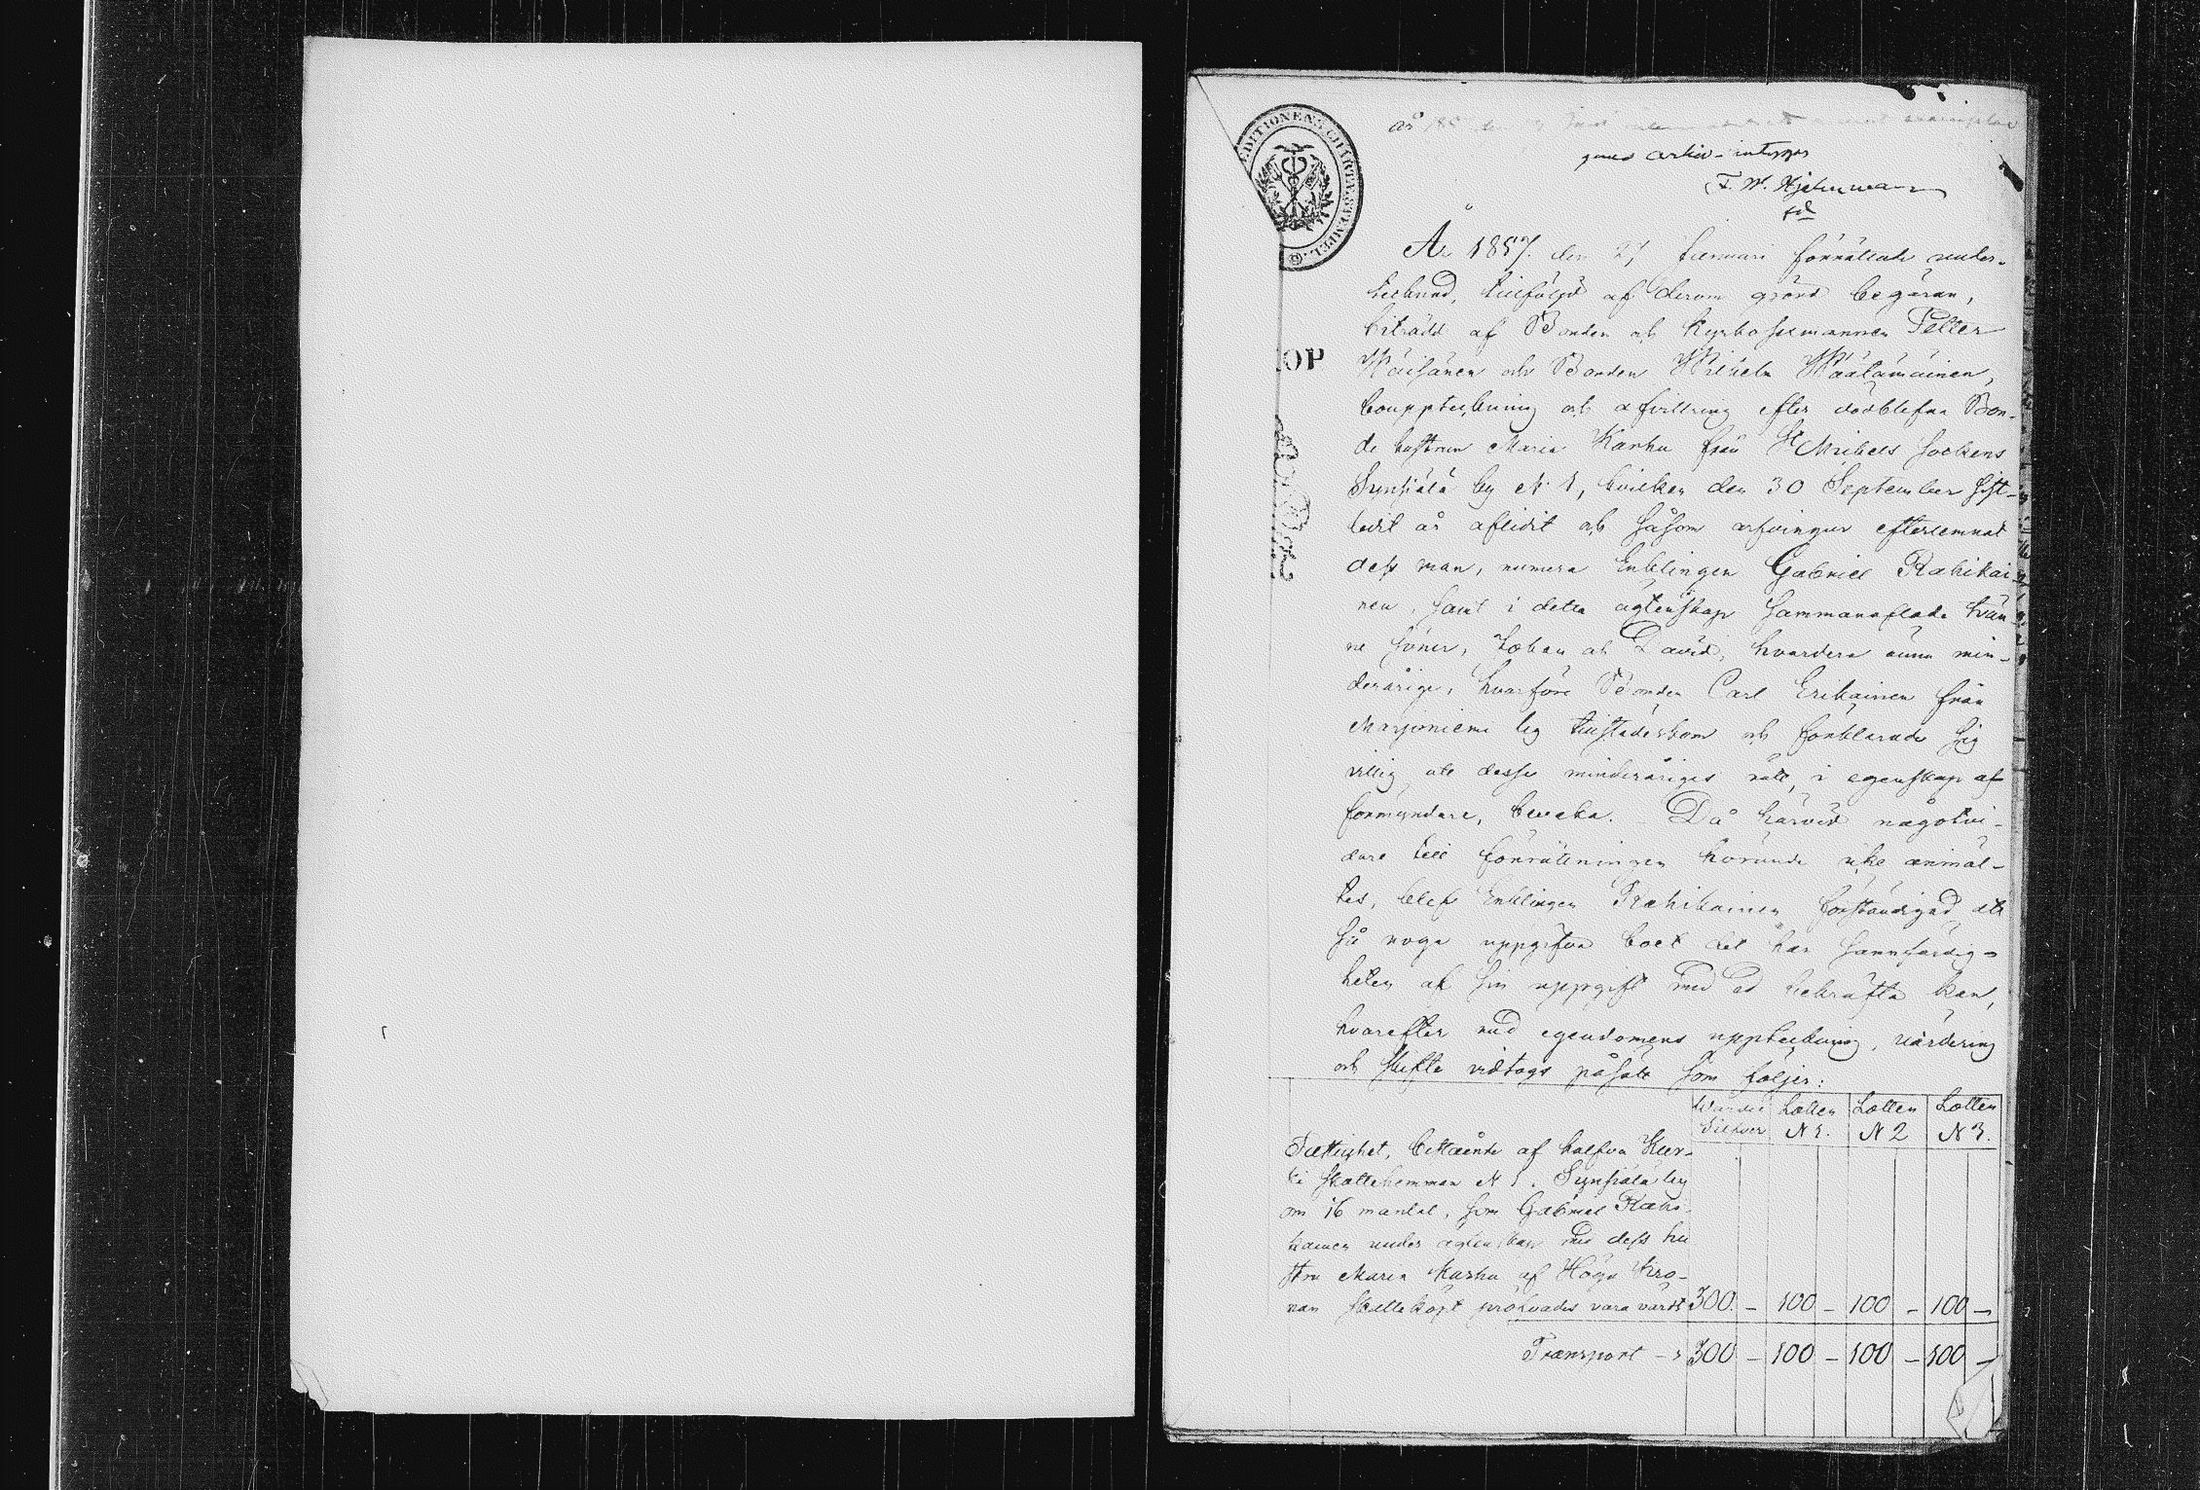 EDITIONENS CHARTÆ STEMPEL.
år
arkiv-
F. W.
År 1857. den 27 Februari förrättade under-
tecknad, tillföljd af derom gjord begäran,
biträdd af Bonden och Kyrkosexmannen Petter
OP
Väisänen och Bonden Wilhelm Määtämäinen,
bouppteckning och afvittring efter dödblefna Bon-
de hustrun Maria Karhu från St Michels sockens
Synsiälä by N 1, hvilken den 30 September sist-
ledit år aflidit och såsom arfvingar efterlemnat
dess man, numera Enklingen Gabriel Rahikai-
nen, samt i detta ägtenskap sammanaflade tvän-
ne söner, Johan och David, hvardera ännu min-
derårige, hvarföre Bonden Carl Erikainen från
Marjoniemi by tillstädeskom och förklarade sig
villig att desse minderåriges rätt, i egenskap af
förmyndare, bevaka. Då härvid någotvi-
dare till förrättningen hörande icke anmäl-
tes, blef Enklingen Rahikainen förständigad att
så noga uppgifva boet det han sannfärdig-
heten af sin uppgift med ed bekräfta kan,
hvarefter med egendomens uppteckning, värdering
och skifte vidtogs påsätt som följer:
Värdet Lotten Lotten Lotten
Silfver N 1. N 2 N 3.
Fattighet, bestående af halfva Kur-
ki skattehemman N 1. Synsiälä by
om 16 mantal, som Gabriel Rahi-
kainen under ägtenskap med dess hu
stru Maria Karhu af Höga Kro-
nan skatteköpt pröfvades vara värdt 300 - 100 - 100 - 100 -
Transport - s 300 - 100 - 100 - 100 -